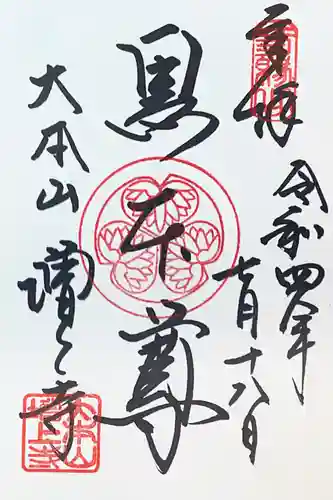 奉拝
令和四年
七月十八日
黒本尊
大本山
増上寺